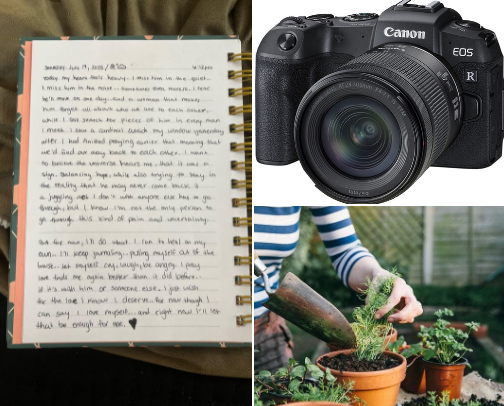 today my heart feels heavy.. I miss him in the quiet..
I miss him in the noise... sometimes even more.. I fear
he'll move on one day.. find a woman that makes
him forget all about who we are to each other..
while I search for pieces of him in every man
I meet. I saw a cardinal outside my window yesterday
after I had finished praying earlier that morning that
we'd find our way back to each other. I want
to believe the universe hears me.. that it was a
sign. Balancing hope, while also trying to stay in
the reality that he may never come back is
a juggling act I don't wish anyone has to go
through, but I know I'm not the only person to
go through this kind of pain and uncertainty.
But for now, I'll do what I can to heal on my
own.. I'll keep journaling.. pulling myself out of the
house.. let myself cry, laugh, be angry. I pray
love finds me again better than it did before..
if it's with him or someone else. I just wish
for the love I know I deserve.. for now though I
can say I love myself.. and right now I'll let
that be enough for me.
Canon
EOS
R